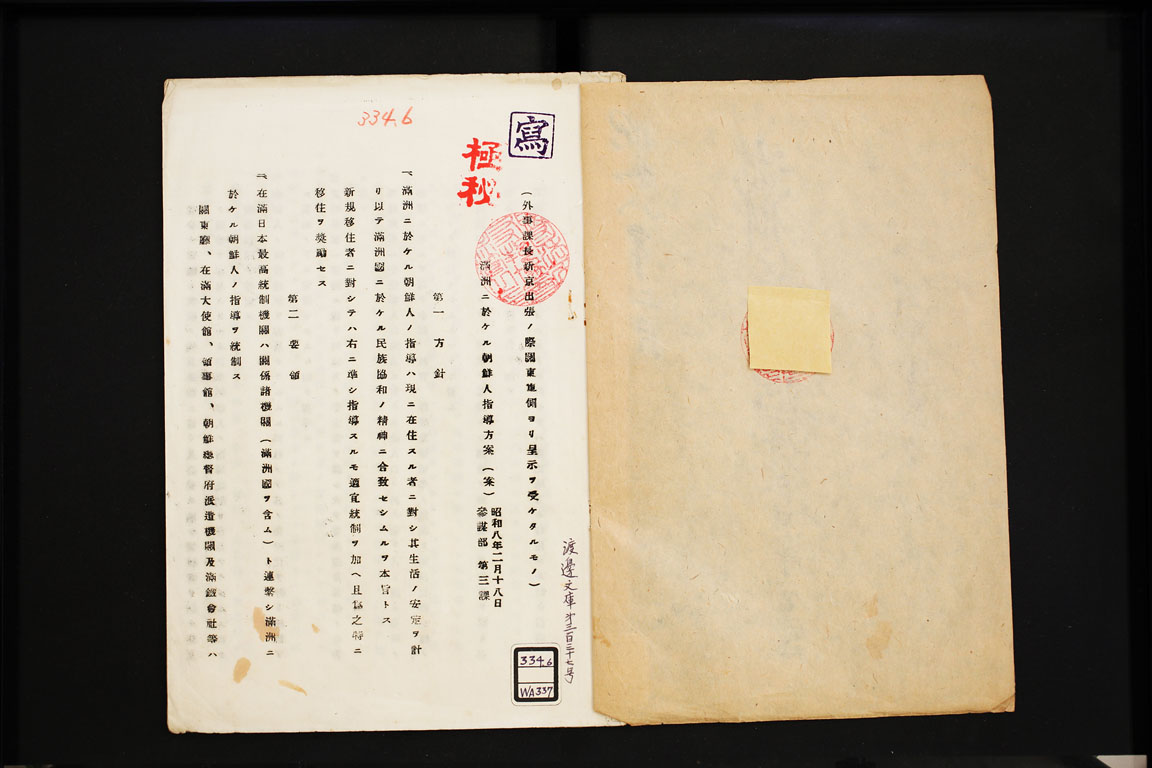 334.6
寫
極秘
(外事課長新京出張ノ際關東軍側ヨリ呈示ヲ受ケタルモノ)
滿洲ニ於ケル朝鮮人指導方案(案)
昭和八年二月十八日
參謀部 第三課
第一 方針
一、滿洲ニ於ケル朝鮮人ノ指導ハ現ニ在住スル者ニ對シ其生活ノ安定ヲ計
リ以テ滿洲國ニ於ケル民族協和ノ精神ニ合致セシムルヲ本旨トス
新規移住者ニ對シテハ右ニ準シ指導スルモ適宜統制ヲ加ヘ且爲之特ニ
移住ヲ獎勵セス
第二 要領
一、在滿日本最高統制機關ハ關係諸機關(滿洲國ヲ含ム)ト連繫シ滿洲ニ
於ケル朝鮮人ノ指導ヲ統制ス
關東廳、在滿大使館、領事館、朝鮮總督府派遣機關及滿鐵會社等ハ
渡邊文庫第三百三十七号
334.6
WA337